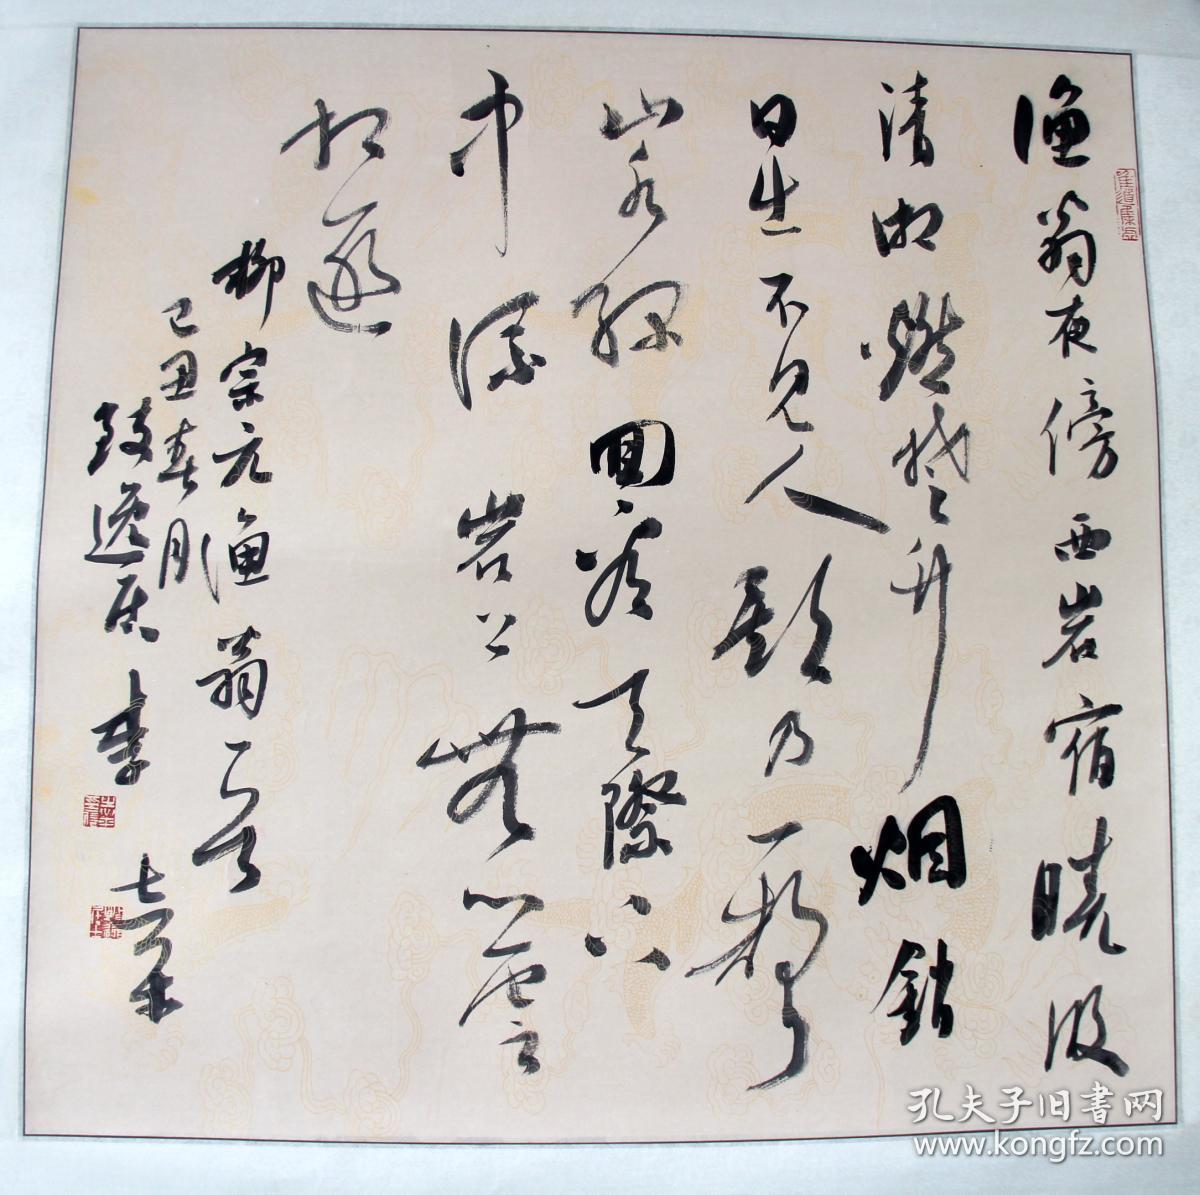 渔翁夜傍西岩宿晓汲
清湘燃楚竹烟销
日出不见人欸乃一声
山水绿回看天际下
中流岩上无心云
相逐
柳宗元渔翁一首
己丑春月
致远居李士荣
孔夫子旧書网
www.kongfz.com